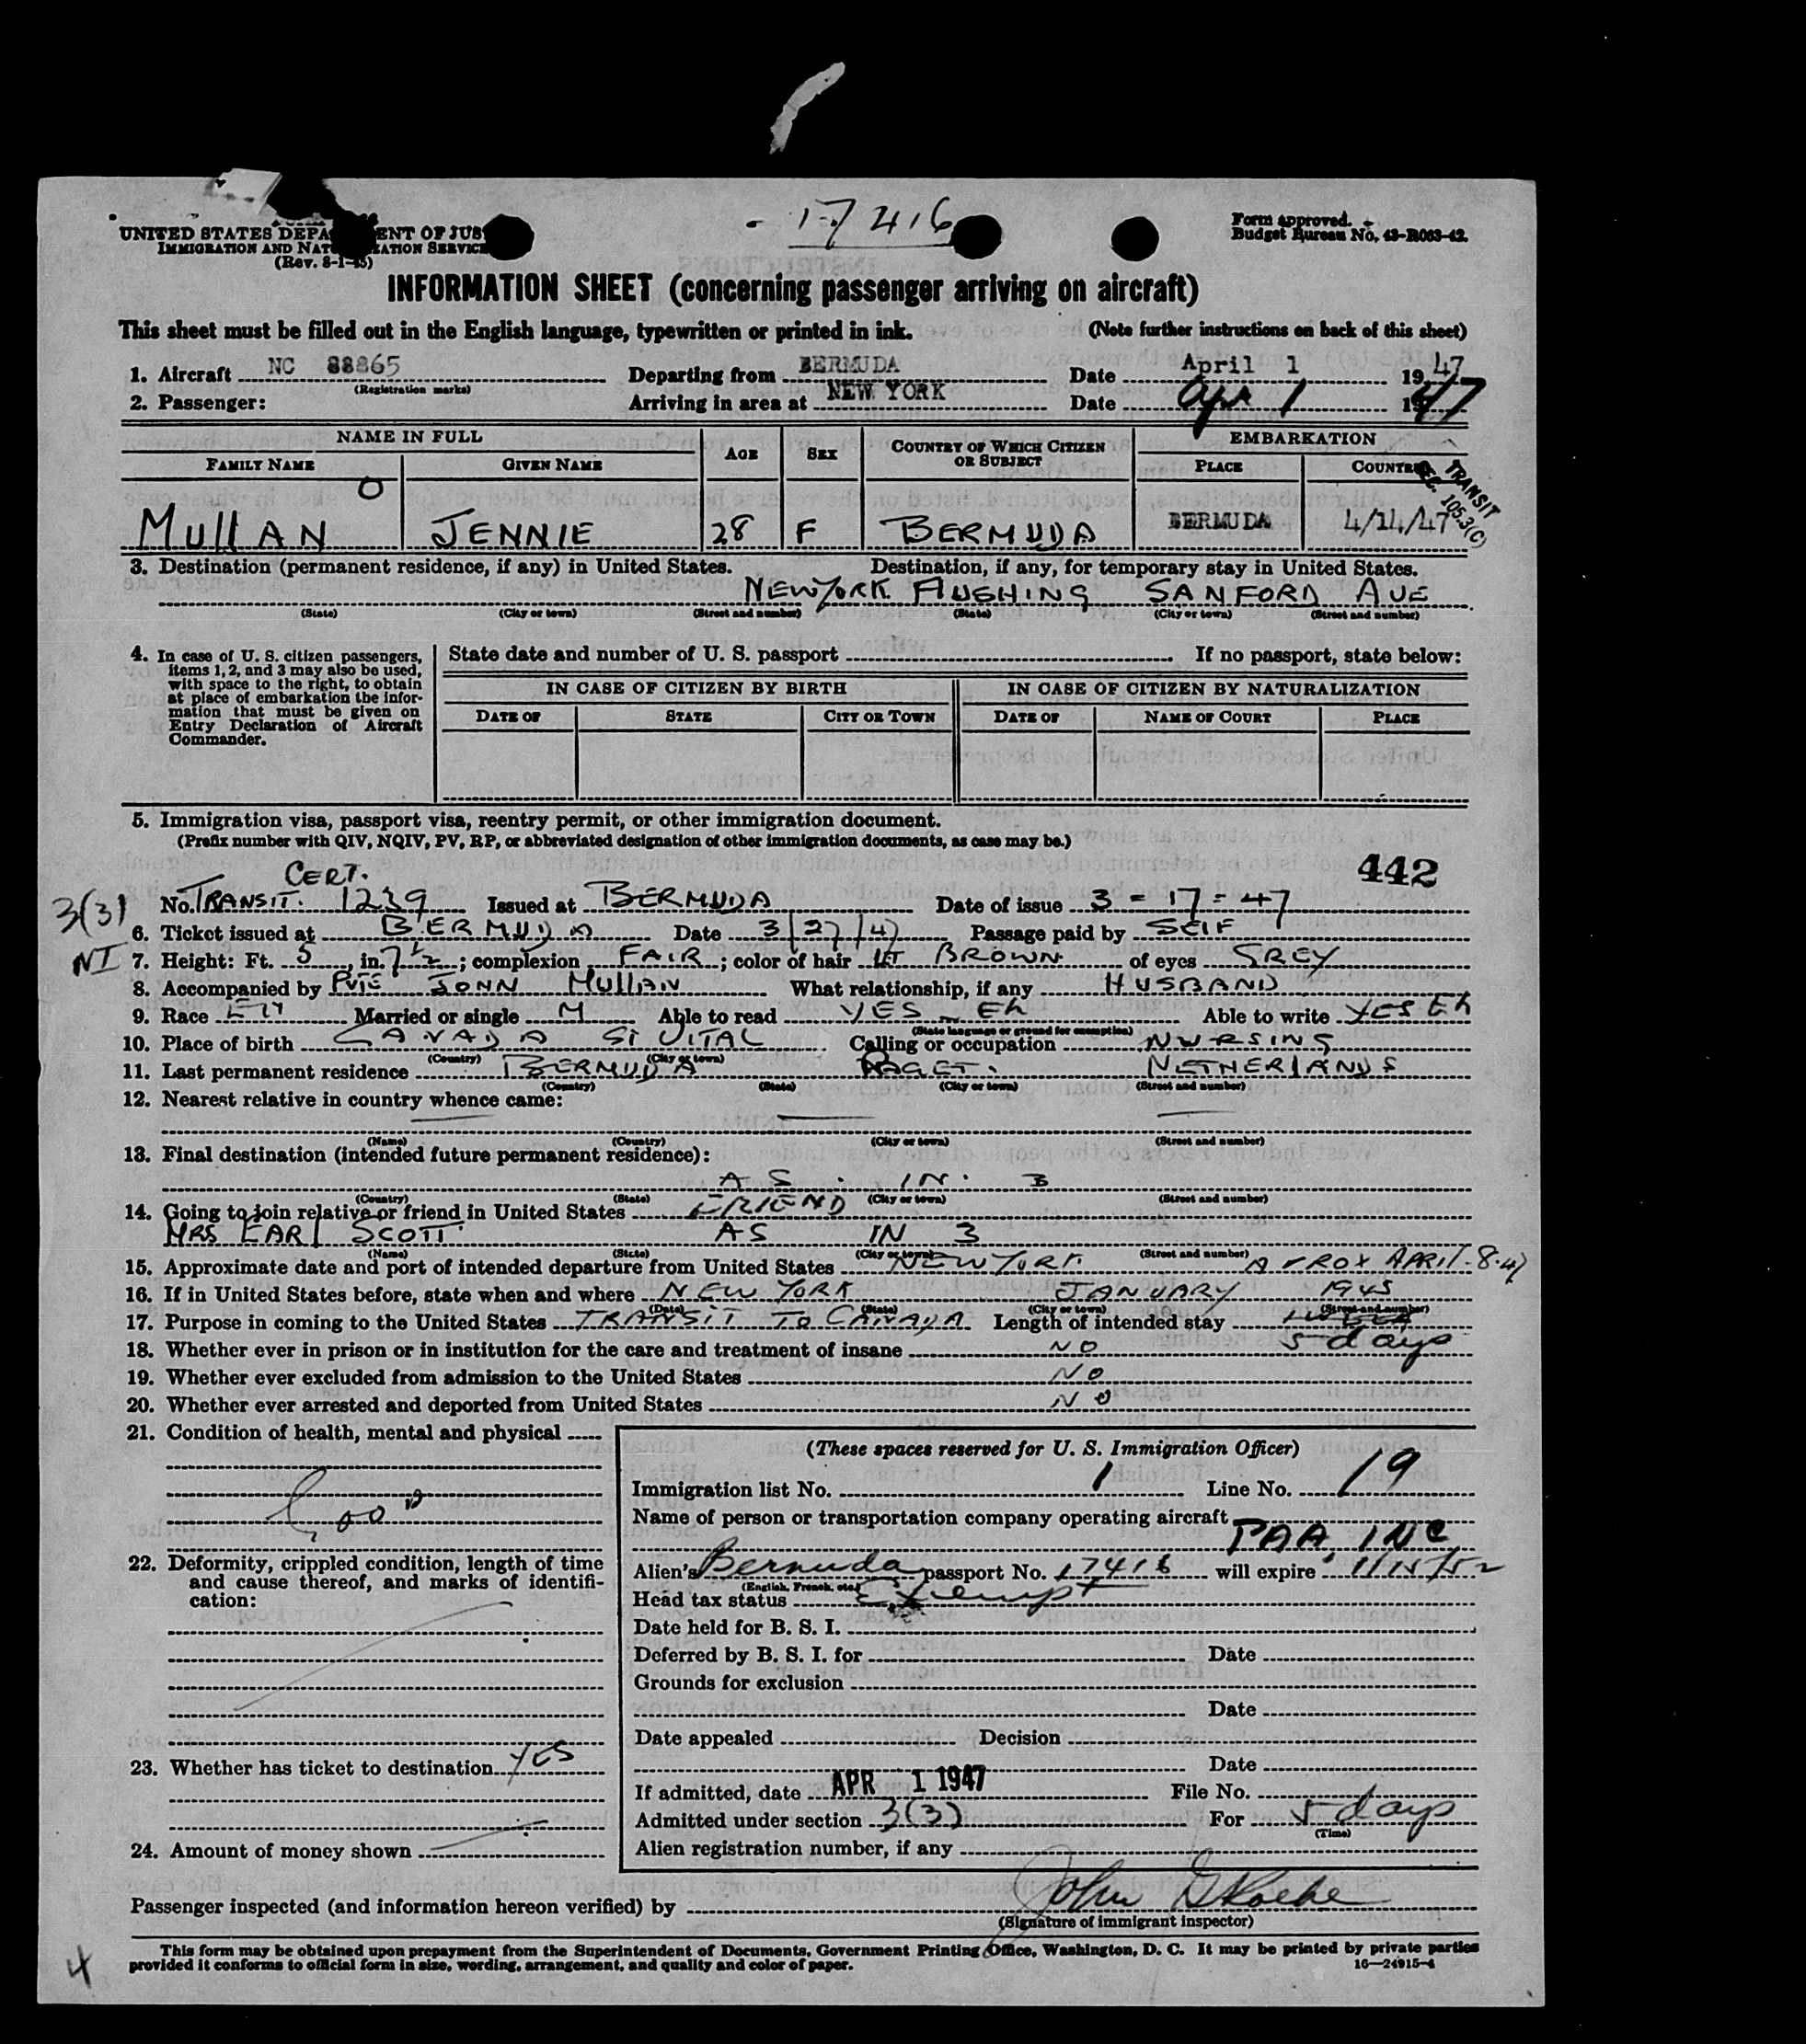 - 17416
Form approved.
Budget Bureau No. 43-R063-42.
UNITED STATES DEPA ENT OF JUS
IMMIGRATION AND NAT ZATION SERVICE
(Rev. 8-1-45)
INFORMATION SHEET (concerning passenger arriving on aircraft)
This sheet must be filled out in the English language, typewritten or printed in ink. (Note further instructions on back of this sheet)
1. Aircraft NC 88865 Departing from BERMUDA Date April 1 1947
(Registration marks)
2. Passenger: Arriving in area at NEW YORK Date Apr 1 1947
NAME IN FULL AGE SEX COUNTRY OF WHICH CITIZEN OR SUBJECT EMBARKATION
FAMILY NAME GIVEN NAME PLACE COUNTRY
TRANSIT
SEC. 105.3(C)
O
MullAN JENNIE 28 F BERMUDA BERMUDA 4/14/47
3. Destination (permanent residence, if any) in United States. Destination, if any, for temporary stay in United States.
NEWYORK FluSHING SANFORD AVE
(State) (City or town) (Street and number) (State) (City or town) (Street and number)
4. In case of U. S. citizen passengers, items 1, 2, and 3 may also be used, with space to the right, to obtain at place of embarkation the information that must be given on Entry Declaration of Aircraft Commander.
State date and number of U. S. passport If no passport, state below:
IN CASE OF CITIZEN BY BIRTH IN CASE OF CITIZEN BY NATURALIZATION
DATE OF STATE CITY OR TOWN DATE OF NAME OF COURT PLACE
5. Immigration visa, passport visa, reentry permit, or other immigration document.
(Prefix number with QIV, NQIV, PV, RP, or abbreviated designation of other immigration documents, as case may be.)
442
CERT.
3(3) No. TRANSIT. 1239 Issued at BERMUDA Date of issue 3-17-47
6. Ticket issued at BERMUDA Date 3/27/47 Passage paid by SELF
NI 7. Height: Ft. 5, in. 7½; complexion FAIR; color of hair LT BROWN of eyes GREY
8. Accompanied by PVTE JOHN MullAN What relationship, if any HUSBAND
9. Race Married or single M Able to read YES Eh Able to write YES Eh
(State language or ground for exemption)
10. Place of birth CANADA ST VITAL Calling or occupation NURSING
(Country) (City or town)
11. Last permanent residence BERMUDA PAGET. NETHERlANDS
(Country) (State) (City or town) (Street and number)
12. Nearest relative in country whence came:
(Name) (Country) (City or town) (Street and number)
13. Final destination (intended future permanent residence):
AS . IN . 3
(Country) (State) (City or town) (Street and number)
14. Going to join relative or friend in United States FRIEND
MRS EARl SCOTT AS IN 3
(Name) (State) (City or town) (Street and number)
15. Approximate date and port of intended departure from United States NEW YORK. APROX APRIl-8-47
16. If in United States before, state when and where NEW YORK JANUARY 1945
(Date) (State) (City or town) (Street and number)
17. Purpose in coming to the United States TRANSIT TO CANADA Length of intended stay 1 WEEK
5 days
18. Whether ever in prison or in institution for the care and treatment of insane NO
19. Whether ever excluded from admission to the United States NO
20. Whether ever arrested and deported from United States NO
21. Condition of health, mental and physical
Good
22. Deformity, crippled condition, length of time and cause thereof, and marks of identification:
23. Whether has ticket to destination YES
24. Amount of money shown
(These spaces reserved for U. S. Immigration Officer)
Immigration list No. 1 Line No. 19
Name of person or transportation company operating aircraft
PAA INC
Alien's Bermuda passport No. 17416 will expire 1/15/52
(English, French, etc.)
Head tax status Exempt
Date held for B. S. I.
Deferred by B. S. I. for Date
Grounds for exclusion
Date
Date appealed Decision
Date
If admitted, date APR 1 1947 File No.
Admitted under section 3(3) For 5 days
(Time)
Alien registration number, if any
Passenger inspected (and information hereon verified) by John G
(Signature of immigrant inspector)
This form may be obtained upon prepayment from the Superintendent of Documents, Government Printing Office, Washington, D. C. It may be printed by private parties
provided it conforms to official form in size, wording, arrangement, and quality and color of paper. 16—24915-4
4